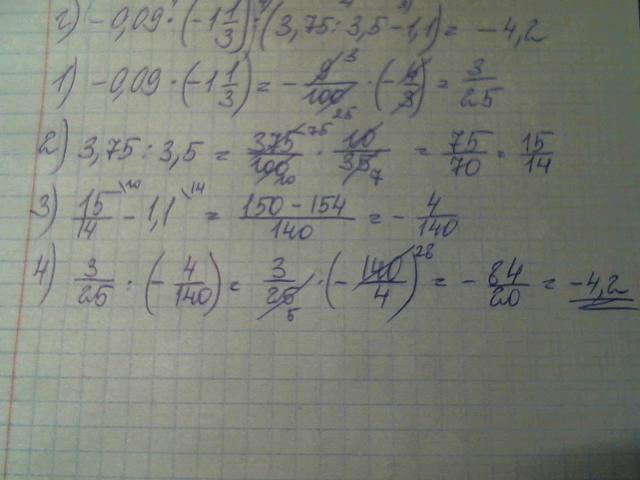 г) -0,09 · (-1 1/3) : (3,75 : 3,5 - 1,1) = -4,2
1) -0,09 · (-1 1/3) = - 9/100 · (-4/3) = 3/25
2) 3,75 : 3,5 = 375/100 · 10/35 = 75/70 = 15/14
3) 15/14 - 1,1 = (150 - 154)/140 = - 4/140
4) 3/25 : (-4/140) = 3/25 · (-140/4) = - 84/20 = -4,2